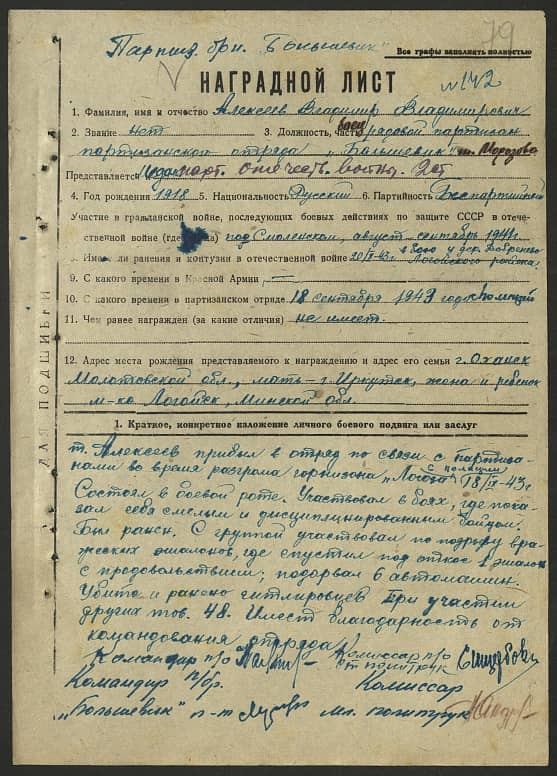 79
Партиз. бриг. "Большевик"
Все графы заполнять полностью
НАГРАДНОЙ ЛИСТ
№142
1. Фамилия, имя и отчество Алексеев Владимир Владимирович
2. Звание нет 3. Должность, часть боец рядовой партизан
партизанского отряда "Большевик" им. Морозова
Представляется орден отечеств. войны 2 ст
4. Год рождения 1918 5. Национальность Русский 6. Партийность Беспартийный
Участие в гражданской войне, последующих боевых действиях по защите СССР и отече-
ственной войне (где под Смоленском, август-сентябрь 1941 г.
ли ранения и контузии в отечественной войне 20/IX-43г. в бою у дер.
Логойского района.
9. С какого времени в Красной Армии —
10. С какого времени в партизанском отряде 18 сентября 1943 года
11. Чем ранее награжден (за какие отличия) не имеет.
12. Адрес места рождения представляемого к награждению и адрес его семьи г. Оханск
Молотовской обл., мать - г. Иркутск, жена и ребенок
м-ко Логойск, Минской обл.
ДЛЯ ПОДШИВКИ
1. Краткое, конкретное изложение личного боевого подвига или заслуг
т. Алексеев прибыл в отряд по связи с партиза-
нами во время разгрома гарнизона с полиции 18/IX-43 г.
Состоял в боевой роте. Участвовал в боях, где пока-
зал себя смелым и дисциплинированным бойцом.
Был ранен. С группой участвовал по подрыву вра-
жеских эшалонов, где спустил под откос 1 эшалон
с продовольствием; подорвал 6 автомашин.
Убито и ранено гитлеровцев при участии
других тов. 48. Имеет благодарность от
командования отряда
Командир п/о Комиссар п/о
ст политрук
Командир п/бр. Комиссар
"Большевик" мл. политрук